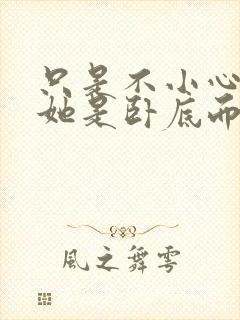 只是不小心
她是卧底而
風之舞雩